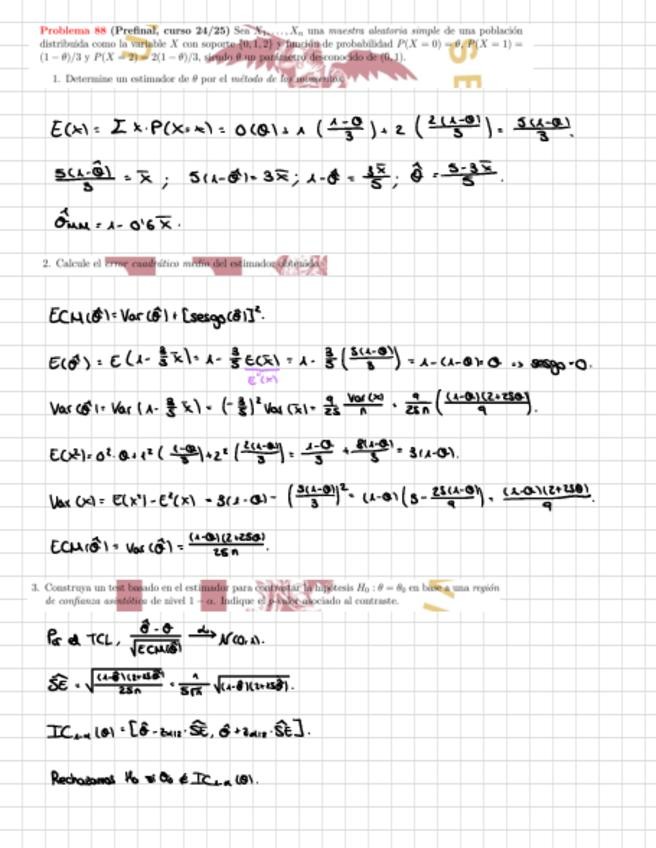 Problema 88 (Prefinal, curso 24/25) Sea X₁,...,Xₙ una muestra aleatoria simple de una población
distribuida como la variable X con soporte {0,1,2} y función de probabilidad P(X = 0) = θ, P(X = 1) =
(1 − θ)/3 y P(X = 2) = 2(1 − θ)/3, siendo θ un parámetro desconocido de (0,1).
1. Determine un estimador de θ por el método de los momentos.
E(x) = Σ x·P(X=x) = 0(θ) + 1 ((1-θ)/3) + 2 (2(1-θ)/3) = 5(1-θ)/3.
5(1-θ̂)/3 = x̄ ; 5(1-θ̂) = 3x̄ ; 1-θ̂ = 3x̄/5 ; θ̂ = (5-3x̄)/5.
θ̂MM = 1- 0'6 x̄.
2. Calcule el error cuadrático medio del estimador obtenido.
ECM(θ̂) = Var(θ̂) + [sesgo(θ̂)]².
E(θ̂) = E(1- 3/5 x̄) = 1- 3/5 E(x̄) = 1- 3/5 (5(1-θ)/3) = 1-(1-θ) = θ => sesgo=0.
E(x)
Var(θ̂) = Var(1- 3/5 x̄) = (-3/5)² Var(x̄) = 9/25 Var(x)/n = 9/25n ((1-θ)(2+25θ)/9).
E(x²) = 0²·θ + 1² ((1-θ)/3) + 2² (2(1-θ)/3) = (1-θ)/3 + 8(1-θ)/3 = 3(1-θ).
Var(x) = E(x²) - E²(x) = 3(1-θ) - (5(1-θ)/3)² = (1-θ)(3 - 25(1-θ)/9) = (1-θ)(2+25θ)/9.
ECM(θ̂) = Var(θ̂) = (1-θ)(2+25θ)/25n.
3. Construya un test basado en el estimador para contrastar la hipótesis H₀ : θ = θ₀ en base a una región
de confianza asintótica de nivel 1 − α. Indique el p-valor asociado al contraste.
Por el TCL, (θ̂-θ)/√ECM(θ̂) →d N(0,1).
ŜE = √((1-θ̂)(2+25θ̂)/25n) = 1/5√n √(1-θ̂)(2+25θ̂).
IC1-α(θ) = [θ̂ - zα/2·ŜE, θ̂ + zα/2·ŜE].
Rechazamos H₀ si θ₀ ∉ IC1-α(θ).